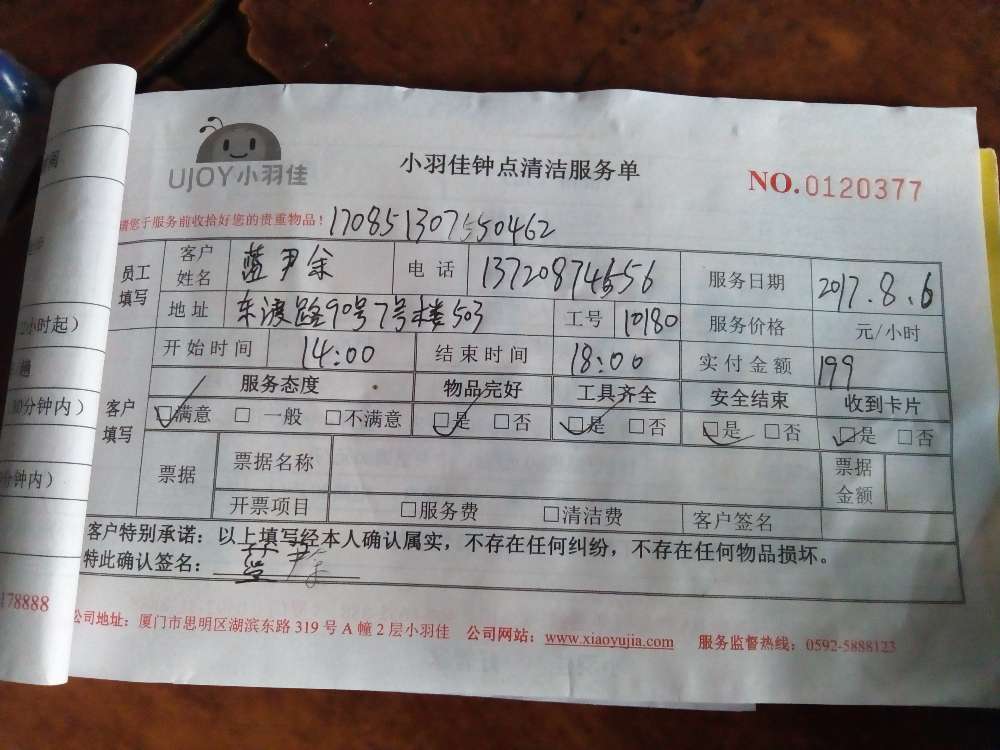 UJOY小羽佳
小羽佳钟点清洁服务单
NO.0120377
请您于服务前收拾好您的贵重物品！170851307550462
员工填写 客户姓名 蓝尹余 电话 13720874656 服务日期 2017.8.6
地址 东渡路90号7号楼503 工号 10180 服务价格 元/小时
开始时间 14:00 结束时间 18:00 实付金额 199
客户填写 服务态度 物品完好 工具齐全 安全结束 收到卡片
☑满意 □一般 □不满意 ☑是 □否 ☑是 □否 ☑是 □否 ☑是 □否
票据 票据名称 票据金额
开票项目 □服务费 □清洁费 客户签名
客户特别承诺：以上填写经本人确认属实，不存在任何纠纷，不存在任何物品损坏。
特此确认签名：蓝尹余
公司地址：厦门市思明区湖滨东路 319 号 A 幢 2 层小羽佳 公司网站：www.xiaoyujia.com 服务监督热线：0592-5888123
2小时起）
30分钟内）
分钟内）
178888